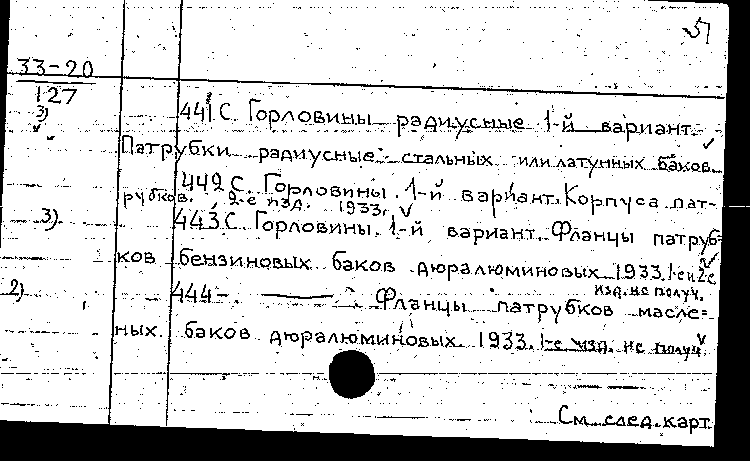 51
33-20
127
3)
441 С. Горловины радиусные 1-й вариант.
Патрубки радиусные стальных или латунных баков.
442 С. Горловины. 1-й вариант. Корпуса пат-
рубков. 2-е изд. 1933.
3) 443 С. Горловины. 1-й вариант. Фланцы патруб=
ков бензиновых баков дюралюминовых 1933. 1-е и 2-е
изд. не получ.
2) 444 -. Фланцы патрубков масле=
ных баков дюралюминовых. 1933. 1-е изд. не получ.
См. след. карт.